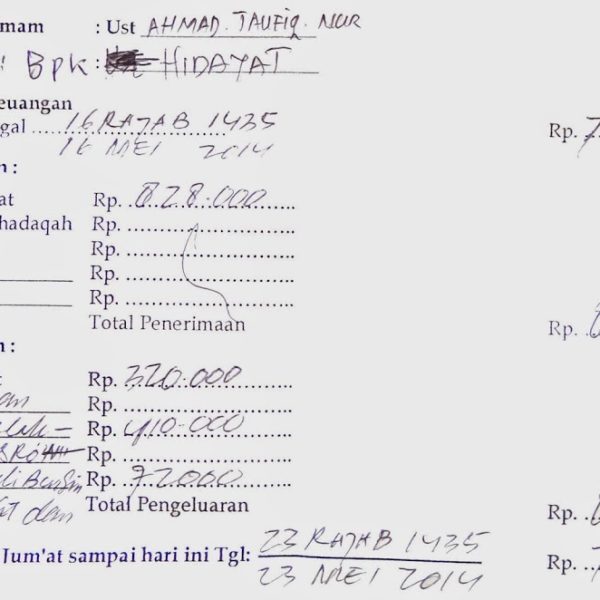 mam : Ust AHMAD. TAUFIQ. NUR
Bpk : HIDAYAT
euangan
gal ........ 16 RAJAB 1435
16 MEI 2014 Rp. 7
n :
at Rp. 828.000
hadaqah Rp.
Rp.
Rp.
Rp.
Total Penerimaan Rp.
n :
Rp. 320.000
an Rp.
Rp. 410.000
Rp.
Rp. 72000
dan Total Pengeluaran Rp.
Jum'at sampai hari ini Tgl: 23 RAJAB 1435
23 MEI 2014 Rp.